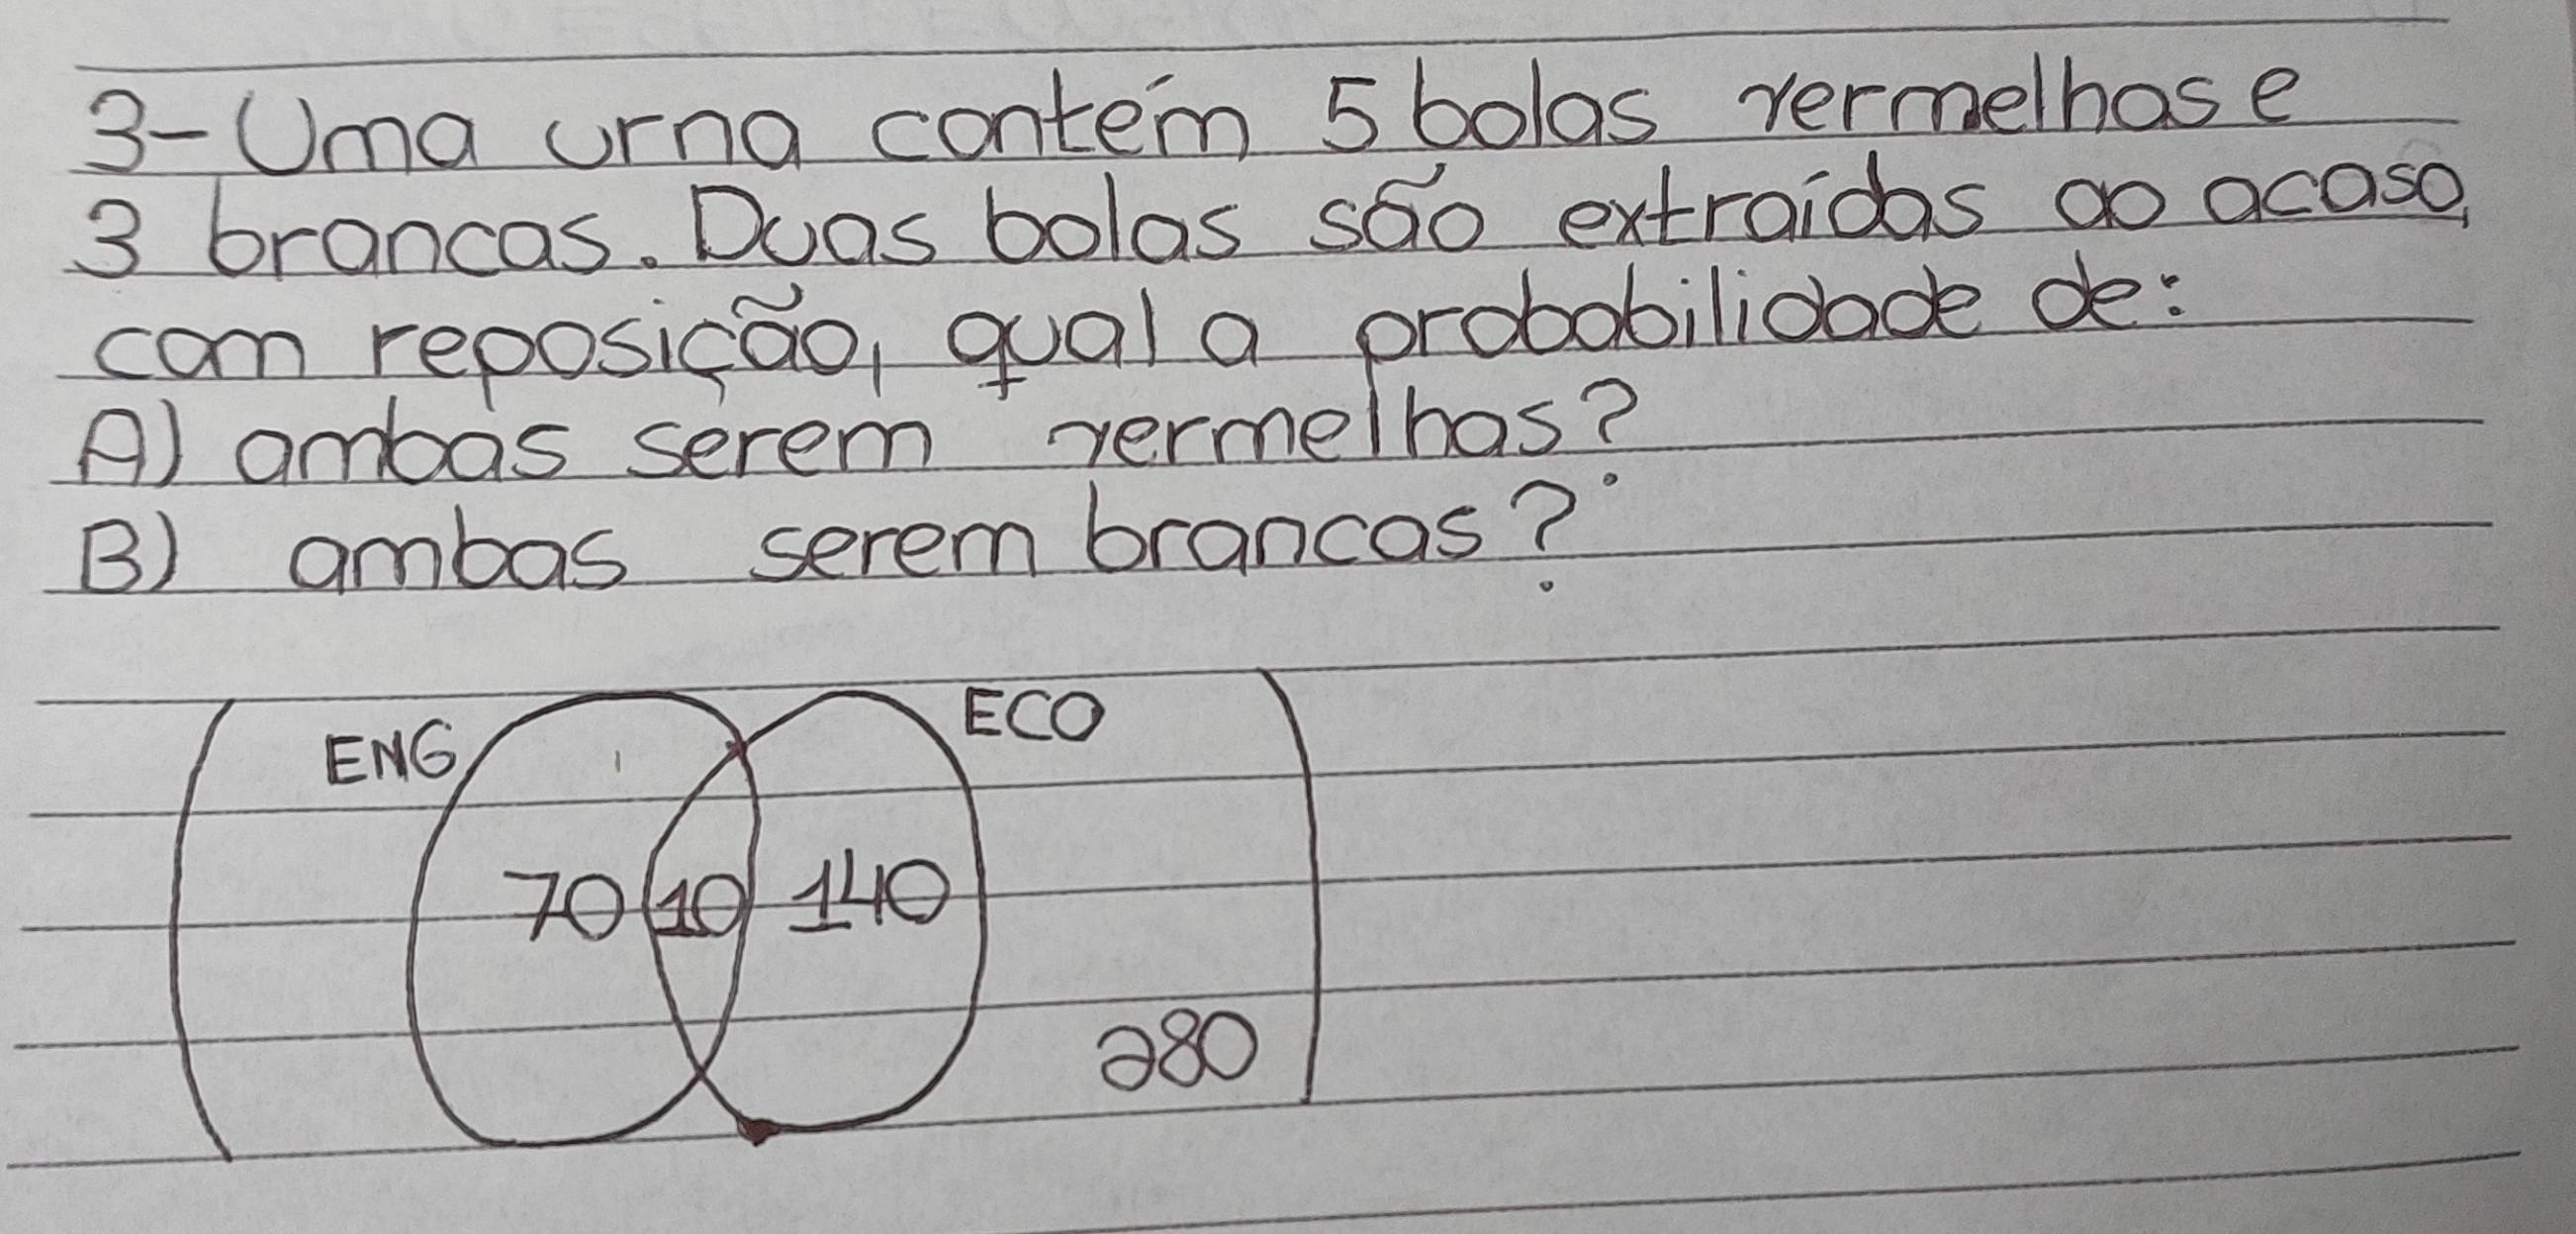 3- Uma urna contém 5 bolas vermelhas e
3 brancas. Duas bolas são extraídas ao acaso,
com reposição, qual a probabilidade de:
A) ambas serem vermelhas?
B) ambas serem brancas?
ENG ECO
70 10 140
280